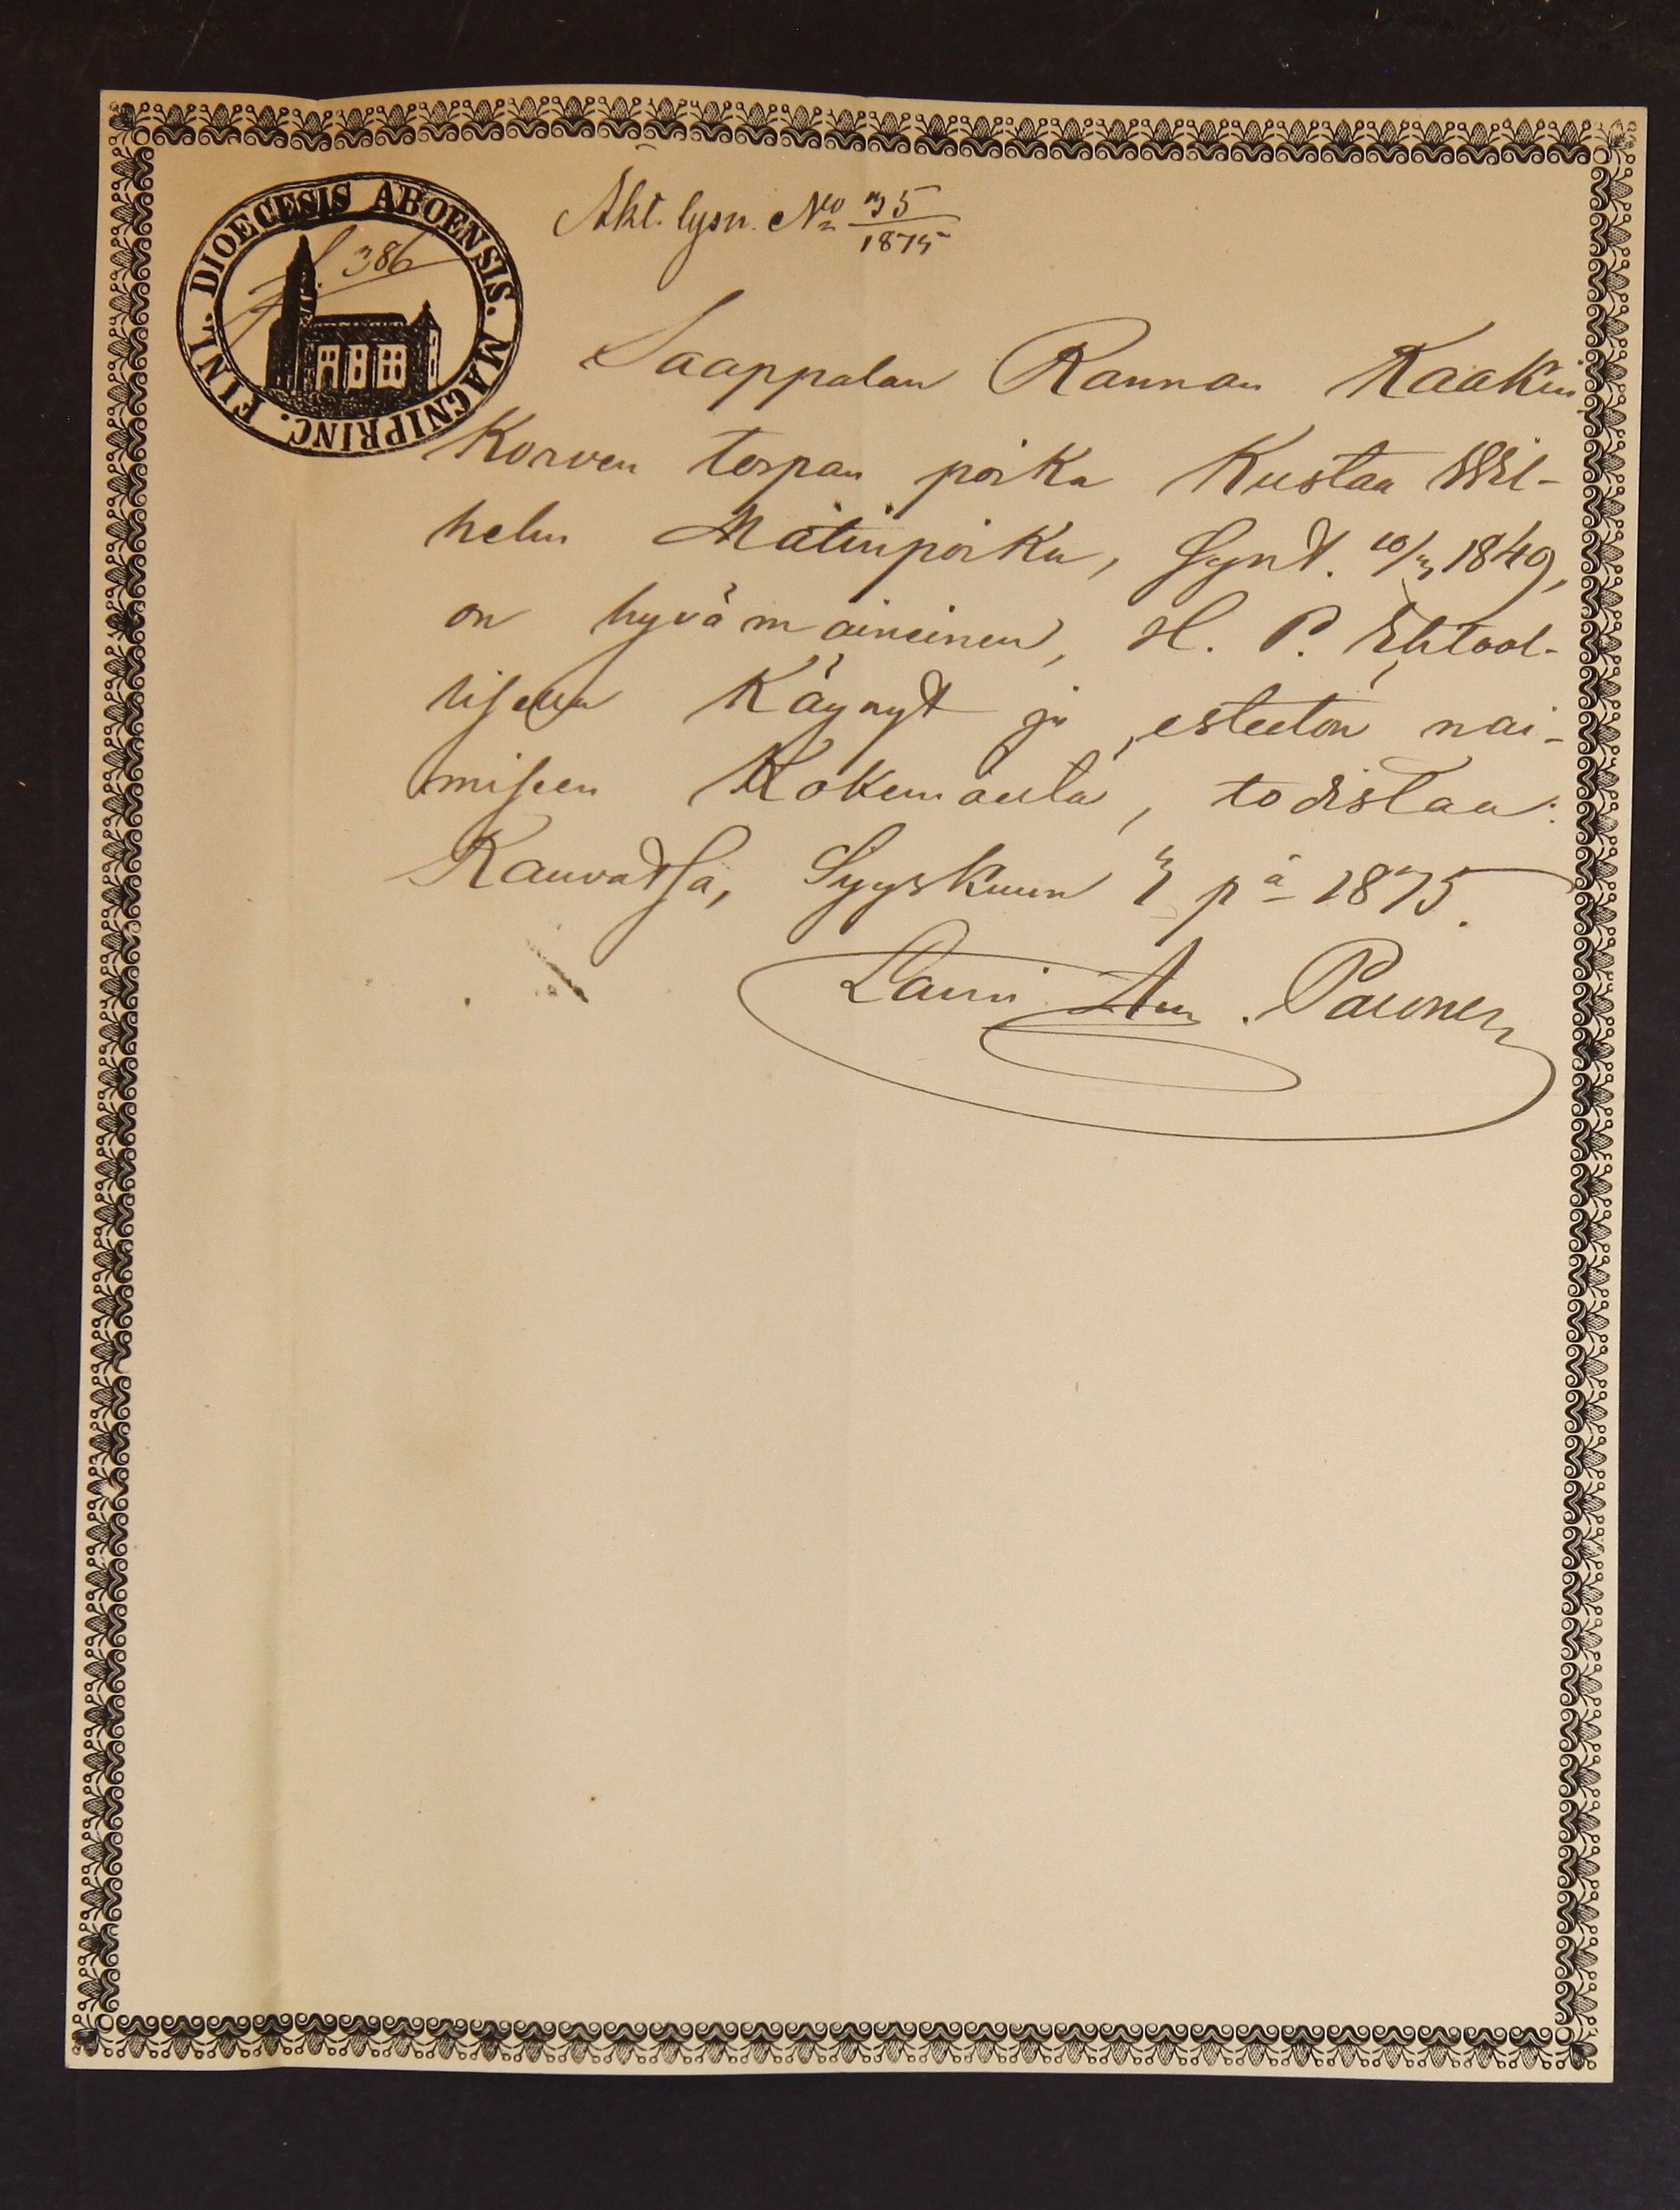 DIOECESIS ABOENSIS. MAGNIPRINC. FINL.
f. 386
Äkt. lysn. No 35/1875
Saappalan Rannan Kaakin
Korven torpan poika Kustaa Wil-
helm Matinpoika, synt. 10/3 1849,
on hyvämaineinen, H. P. Ehtool-
lisella käynyt ja esteetön nai-
miseen Kokemäeltä, todistaa:
Kauvatsa, Syyskuun pä 1875.
Lauri Paunen